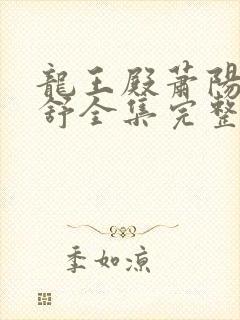 龍王殿蕭陽
舒全集完整
季如涼